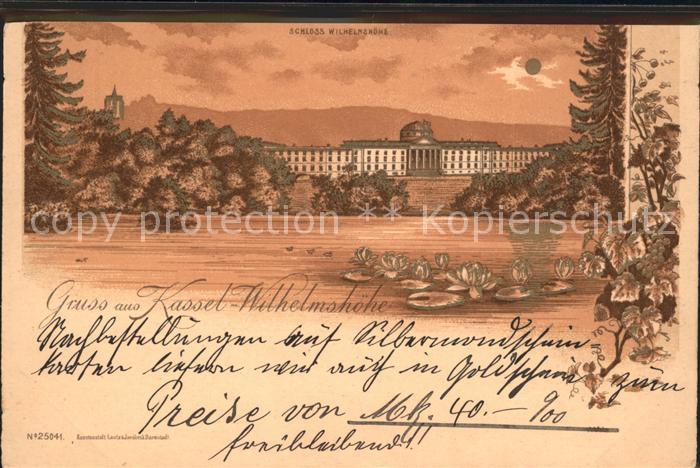 SCHLOSS WILHELMSHÖHE
copy protection ** Kopierschutz
Gruss aus Kassel-Wilhelmshöhe
Nachbestellungen auf Silbermondschein
karten liefern wir auch in Goldschein zum
Preise von Mk. 40.- %00
freibleibend!!
No 25041. Kunstanstalt Lautz & Jsenbeck, Darmstadt.